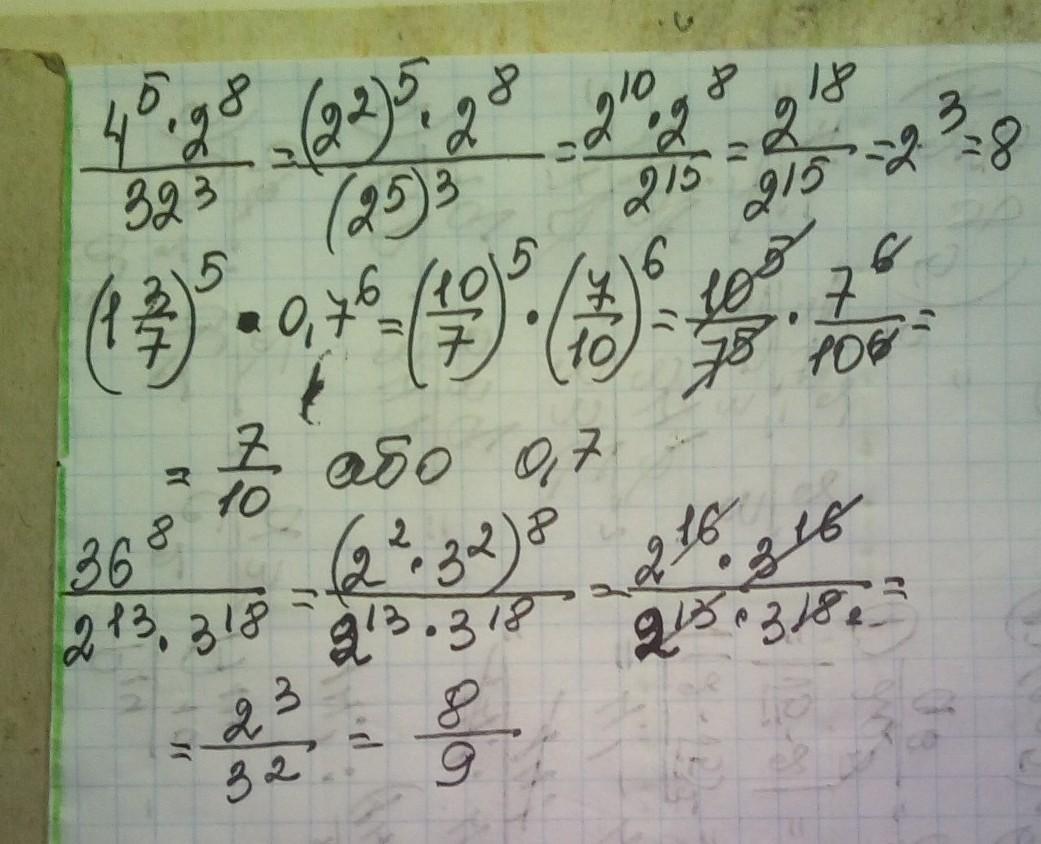 4⁵·2⁸/32³ = (2²)⁵·2⁸/(2⁵)³ = 2¹⁰·2⁸/2¹⁵ = 2¹⁸/2¹⁵ = 2³ = 8
(1 3/7)⁵ · 0,7⁶ = (10/7)⁵ · (7/10)⁶ = 10⁵/7⁵ · 7⁶/10⁶ =
= 7/10 або 0,7
36⁸/2¹³·3¹⁸ = (2²·3²)⁸/2¹³·3¹⁸ = 2¹⁶·3¹⁶/2¹³·3¹⁸ =
= 2³/3² = 8/9